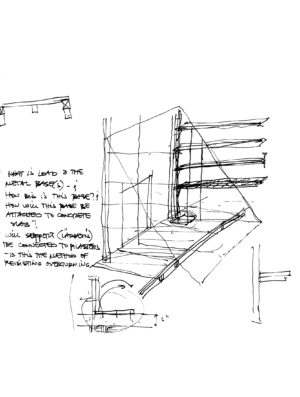 WHAT IS LOAD @ THE
METAL BASE(S) - ?
HOW BIG IS THIS BASE??
HOW WILL THIS BASE BE
ATTACHED TO CONCRETE
SLAB?
WILL (LADDERS)
BE CONNECTED TO
- IS THIS THE METHOD OF
RESISTING OVERTURNING
6"